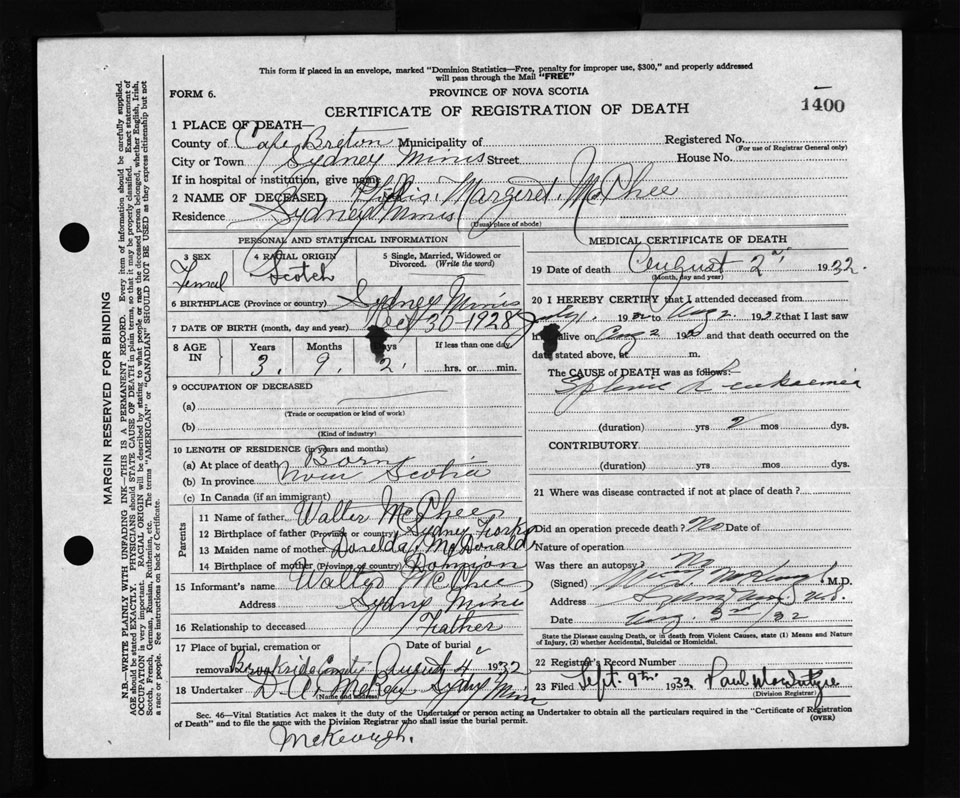 This form if placed in an envelope, marked "Dominion Statistics—Free, penalty for improper use, $300," and properly addressed
will pass through the Mail "FREE"
FORM 6. PROVINCE OF NOVA SCOTIA
CERTIFICATE OF REGISTRATION OF DEATH 1400
1 PLACE OF DEATH—
County of Cape Breton Municipality of Registered No.
(For use of Registrar General only)
City or Town Sydney Mines Street House No.
If in hospital or institution, give name
2 NAME OF DECEASED Phillis Margaret McPhee
Residence Sydney Mines
(Usual place of abode)
PERSONAL AND STATISTICAL INFORMATION
3 SEX 4 RACIAL ORIGIN 5 Single, Married, Widowed or
Divorced. (Write the word)
Femel Scotch
6 BIRTHPLACE (Province or country) Sydney Mines
7 DATE OF BIRTH (month, day and year) Oct 30-1928
8 AGE IN Years Months Days If less than one day.
3. 9. 2. hrs. or min.
9 OCCUPATION OF DECEASED
(a)
(Trade or occupation or kind of work)
(b)
(Kind of industry)
10 LENGTH OF RESIDENCE (in years and months)
(a) At place of death Born
(b) In province Nova Scotia
(c) In Canada (if an immigrant)
Parents
11 Name of father Walter McPhee
12 Birthplace of father (Province or country) Sydney Forks
13 Maiden name of mother Donelda McDonald
14 Birthplace of mother (Province or country)
15 Informant's name Walter McPhee
Address Sydney Mines
16 Relationship to deceased Father
17 Place of burial, cremation or Date of burial
removal Brookside August 4 1932
18 Undertaker D. A. McRae Sydney Mines
(Name and address)
MEDICAL CERTIFICATE OF DEATH
19 Date of death August 2nd 1932.
(Month, day and year)
20 I HEREBY CERTIFY that I attended deceased from
July 1. 1932 to Aug 2. 1932 that I last saw
h alive on Aug 2 19 and that death occurred on the
date stated above, at m.
The CAUSE of DEATH was as follows:
Splenic Leukaemia
(duration) yrs 2 mos dys.
CONTRIBUTORY
(duration) yrs. mos. dys.
21 Where was disease contracted if not at place of death?
Did an operation precede death? No Date of
Nature of operation
Was there an autopsy? No
(Signed) McKeough M.D.
Address Sydney Mines, N.S.
Date Aug. 3rd /32
State the Disease causing Death, or in death from Violent Causes, state (1) Means and Nature
of Injury, (2) whether Accidental, Suicidal or Homicidal.
22 Registrar's Record Number
23 Filed Sept. 9th 1932 Paul
(Division Registrar)
Sec. 46—Vital Statistics Act makes it the duty of the Undertaker or person acting as Undertaker to obtain all the particulars required in the "Certificate of Registration
of Death" and to file the same with the Division Registrar who shall issue the burial permit. (OVER)
McKeough.
MARGIN RESERVED FOR BINDING
N.B.—WRITE PLAINLY WITH UNFADING INK—THIS IS A PERMANENT RECORD. Every item of information should be carefully supplied.
AGE should be stated EXACTLY. PHYSICIANS should STATE CAUSE OF DEATH in plain terms, so that it may be properly classified. Exact statement of
OCCUPATION is very important. RACIAL ORIGIN will be described by stating to what people or race the deceased person belonged, whether English, Irish,
Scotch, French, German, Russian, Ruthenian, etc. The terms "AMERICAN" or "CANADIAN" SHOULD NOT BE USED as they express citizenship but not
a race or people. See instructions on back of Certificate.